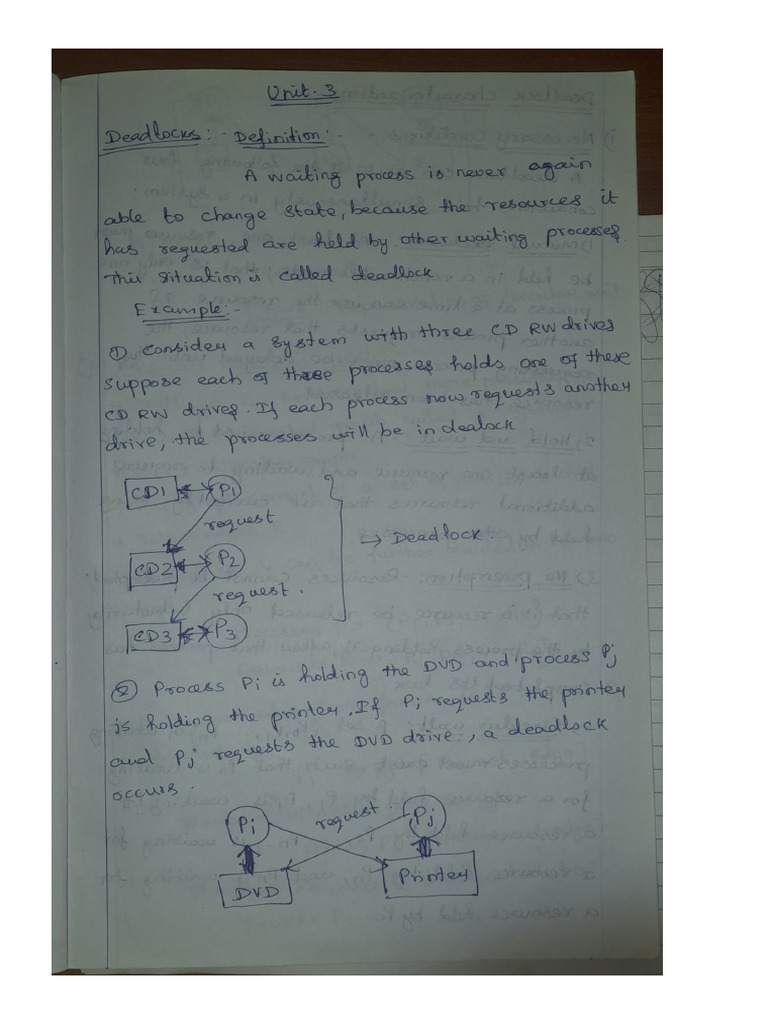 Unit. 3
Deadlocks: - Definition: -
A waiting process is never again
able to change state, because the resources it
has requested are held by other waiting processes.
This situation is called deadlock.
Example: -
① Consider a system with three CD RW drives
suppose each of these processes holds one of these
CD RW drives. If each process now requests another
drive, the processes will be in dealock
CD1 P1
request
→ Deadlock.
CD2 P2
request.
CD3 P3
② Process Pi is holding the DVD and process Pj
is holding the printer. If Pi requests the printer
and Pj requests the DVD drive, a deadlock
occurs.
Pi request. Pj
DVD Printer